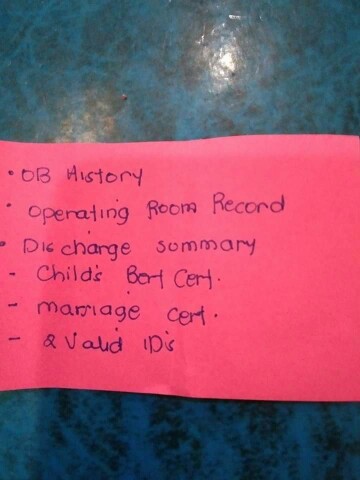 • OB History
• Operating Room Record
• Discharge summary
- Child's Bert Cert.
- marriage cert.
- 2 Valid ID's